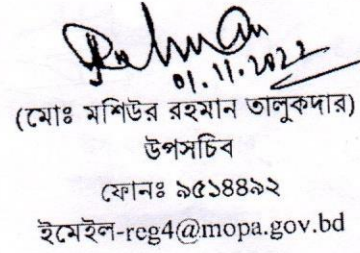 Rahman
01.11.2022
(মোঃ মশিউর রহমান তালুকদার)
উপসচিব
ফোনঃ ৯৫১৪৪৯২
ইমেইল-reg4@mopa.gov.bd